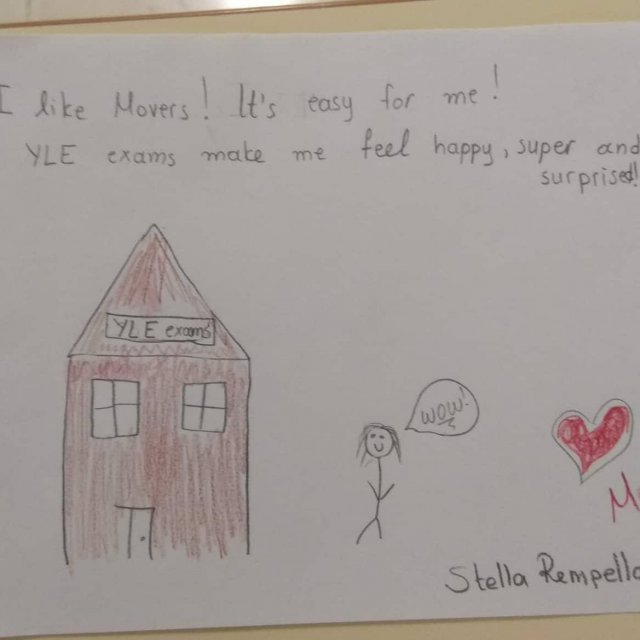 I like Movers! It's easy for me!
YLE exams make me feel happy, super and
surprised!
YLE exams
WOW!
Stella Rempella